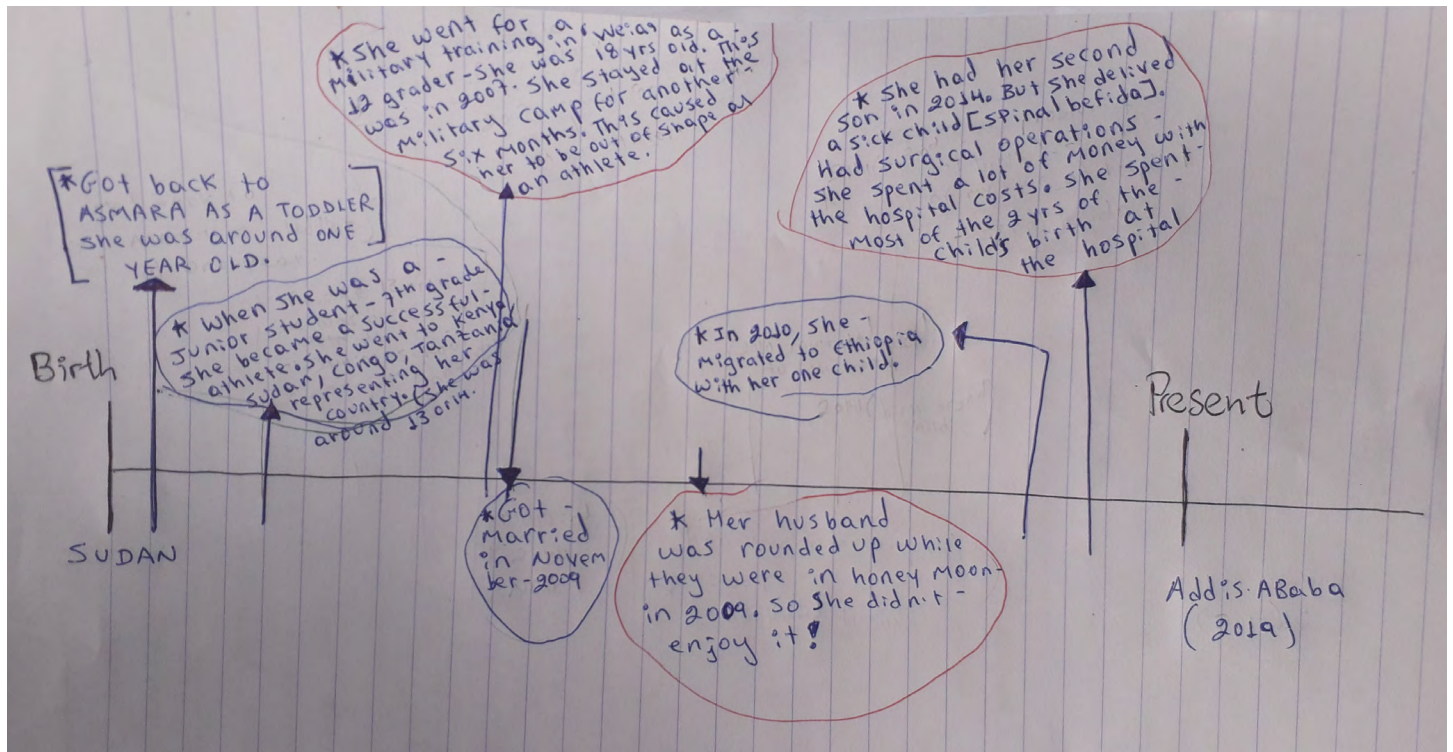 Birth
SUDAN
*Got back to
ASMARA AS A TODDLER
she was around ONE
YEAR OLD.
* When she was a -
Junior student - 7th grade
she became a successful-
athlete. She went to Kenya,
Sudan, Congo, Tanzania
representing her
country. (She was
around 13 or 14.
*She went for a
Military training in Weias as a
12 grader-She was 18 yrs old. This
was in 2007. She stayed at the
Military camp for another-
six months. This caused
her to be out of shape as
an athlete.
*Got -
Married
in Novem
ber-2009
* Her husband
was rounded up while
they were in honey Moon-
in 2009. So She didn't -
enjoy it!
*In 2010, she -
Migrated to Ethiopia
with her one child.
* She had her second
son in 2014. But she delived
a sick child [spinal befida].
Had surgical operations -
She spent a lot of Money with
the hospital costs. She spent-
Most of the 2 yrs of the -
child's birth at
the hospital
Present
Addis.ABaba
(2019)